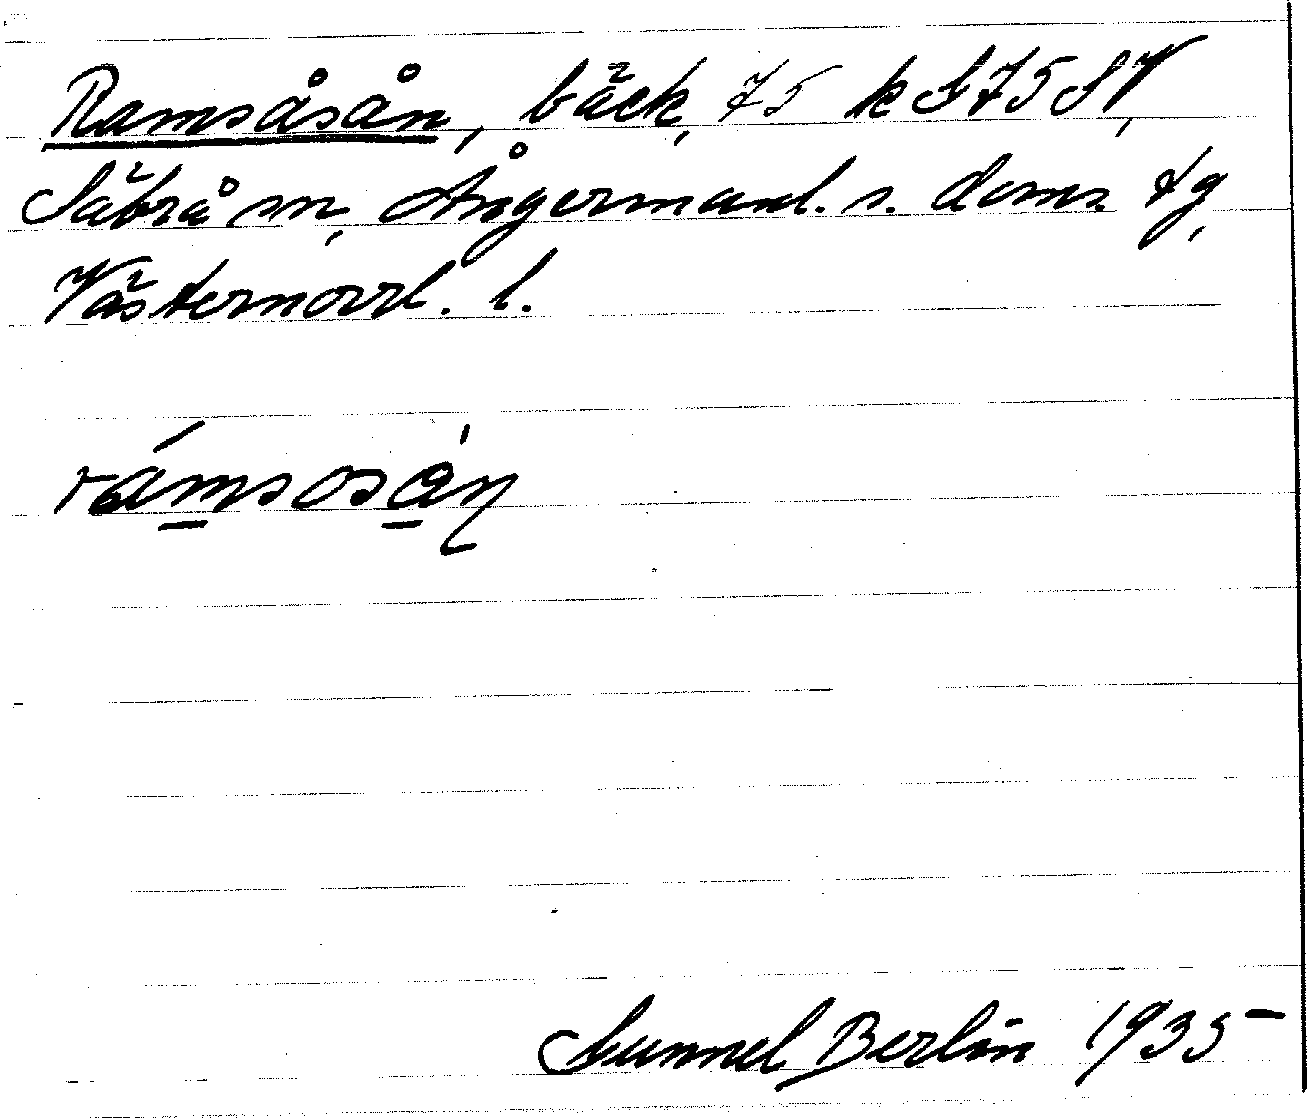 Ramsåsån, bäck, 75 k S 75 SV,
Säbrå sn, Ångermanl. s. doms. tg,
Västernorrl. l.
rámsosàn
Gunnel Berlin 1935